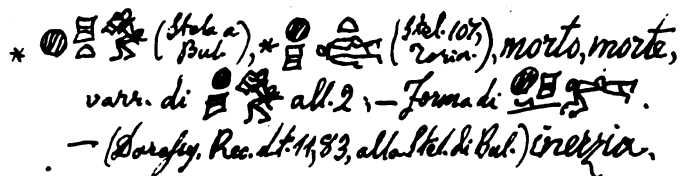 * (Stela a Bul.), * (Stel. 107, Torin.), morto, morte,
varr. di all. 2; — Forma di .
— (Daressy. Rec. d. t. 11, 83, alla Stel. di Bul.) inerzia.